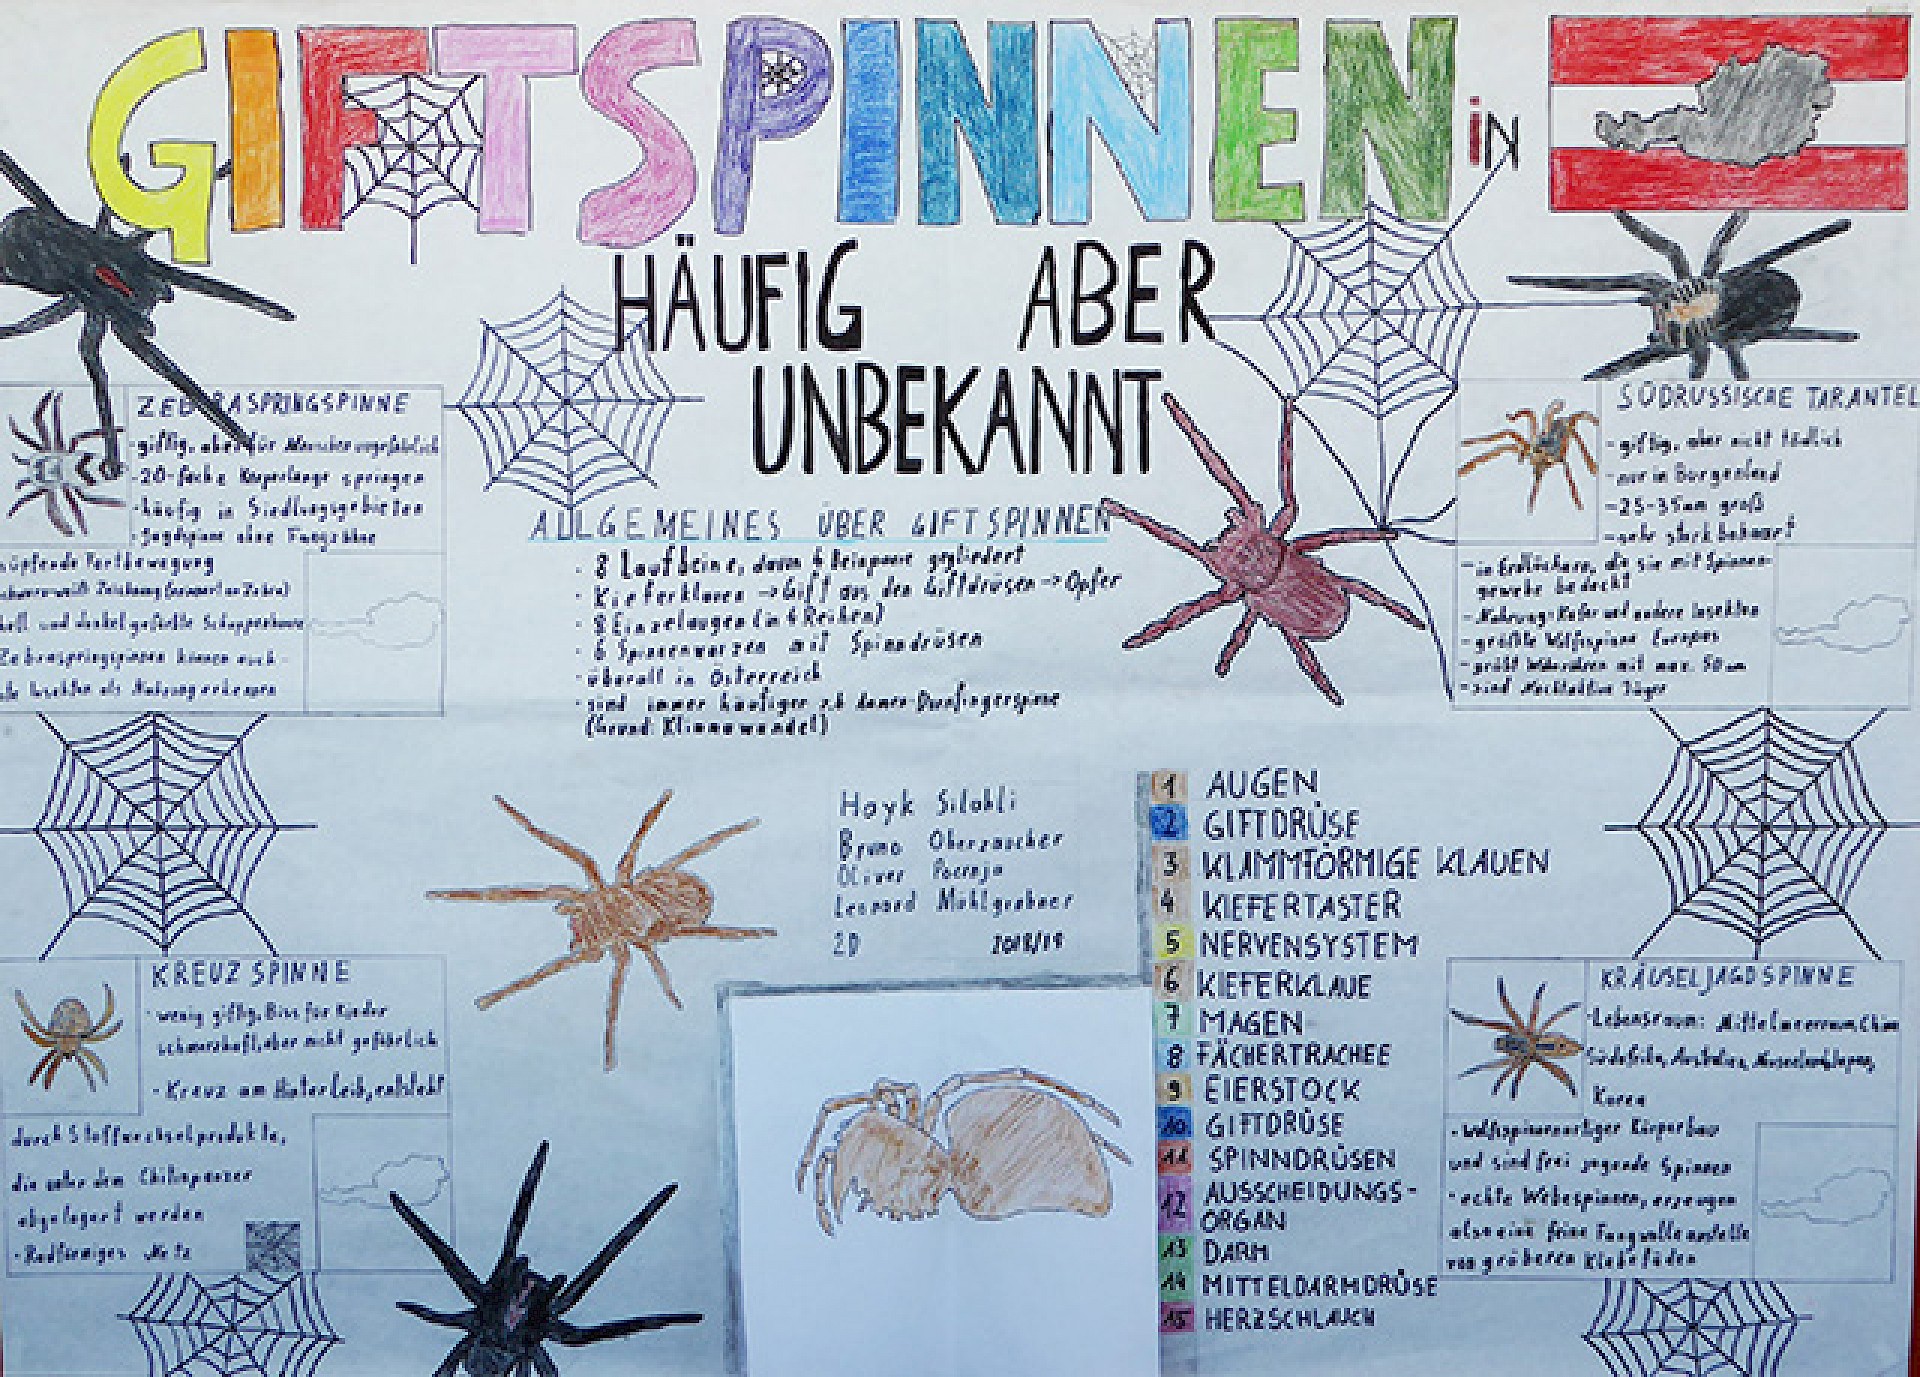 GIFTSPINNEN in
HÄUFIG ABER
UNBEKANNT
ZEBRASPRINGSPINNE
-giftig, aber für Menschen ungefährlich
-20-fache Körperlänge springen
-häufig in Siedlungsgebieten
-Jagdspinne ohne Fangzähne
hüpfende Fortbewegung
schwarz-weiß Zeichnung (erinnert an Zebra)
hell und dunkel gefärbte Schuppenhaare
Zebraspringspinnen können auch
Insekten als Nahrung erkennen
ALLGEMEINES ÜBER GIFTSPINNEN
· 8 Laufbeine, davon 6 Beinpaare gegliedert
· Kieferklauen → Gift aus den Giftdrüsen → Opfer
· 8 Einzelaugen (in 4 Reihen)
· 6 Spinnenwarzen mit Spinndrüsen
· überall in Österreich
· sind immer häufiger z.b Dornfingerspinne
(Grund: Klimawandel)
SÜDRUSSISCHE TARANTEL
-giftig, aber nicht tödlich
-nur in Burgenland
-25-35mm groß
-sehr stark behaart
-in Erdlöchern, die sie mit Spinnen-
gewebe bedeckt
-Nahrung: Käfer und andere Insekten
-größte Wolfsspinne Europas
-gräbt Wohnröhren mit max. 50cm
-sind Nachtaktive Jäger
Hayk
Bruno Oberrauscher
Oliver
Leonard Mühlgrabner
2D 2018/19
1 AUGEN
2 GIFTDRÜSE
3 KLAMMFÖRMIGE KLAUEN
4 KIEFERTASTER
5 NERVENSYSTEM
6 KIEFERKLAUE
7 MAGEN
8 FÄCHERTRACHEE
9 EIERSTOCK
10 GIFTDRÜSE
11 SPINNDRÜSEN
12 AUSSCHEIDUNGS-
ORGAN
13 DARM
14 MITTELDARMDRÜSE
15 HERZSCHLAUCH
KREUZSPINNE
· wenig giftig, Biss für Kinder
schmerzhaft, aber nicht gefährlich
· Kreuz am Hinterleib, entsteht
durch Stoffwechselprodukte,
die unter dem Chitinpanzer
abgelagert werden
· Radförmiges Netz
KRÄUSELJAGDSPINNE
·Lebensraum: Mittelmeerraum, China
Südafrika, Australien, Neuseeland, Japan,
Korea
·Wolfsspinnenartiger Körperbau
und sind frei jagende Spinnen
·echte Webespinnen, erzeugen
also eine feine Fangwolle anstelle
von gröberen Klebefäden